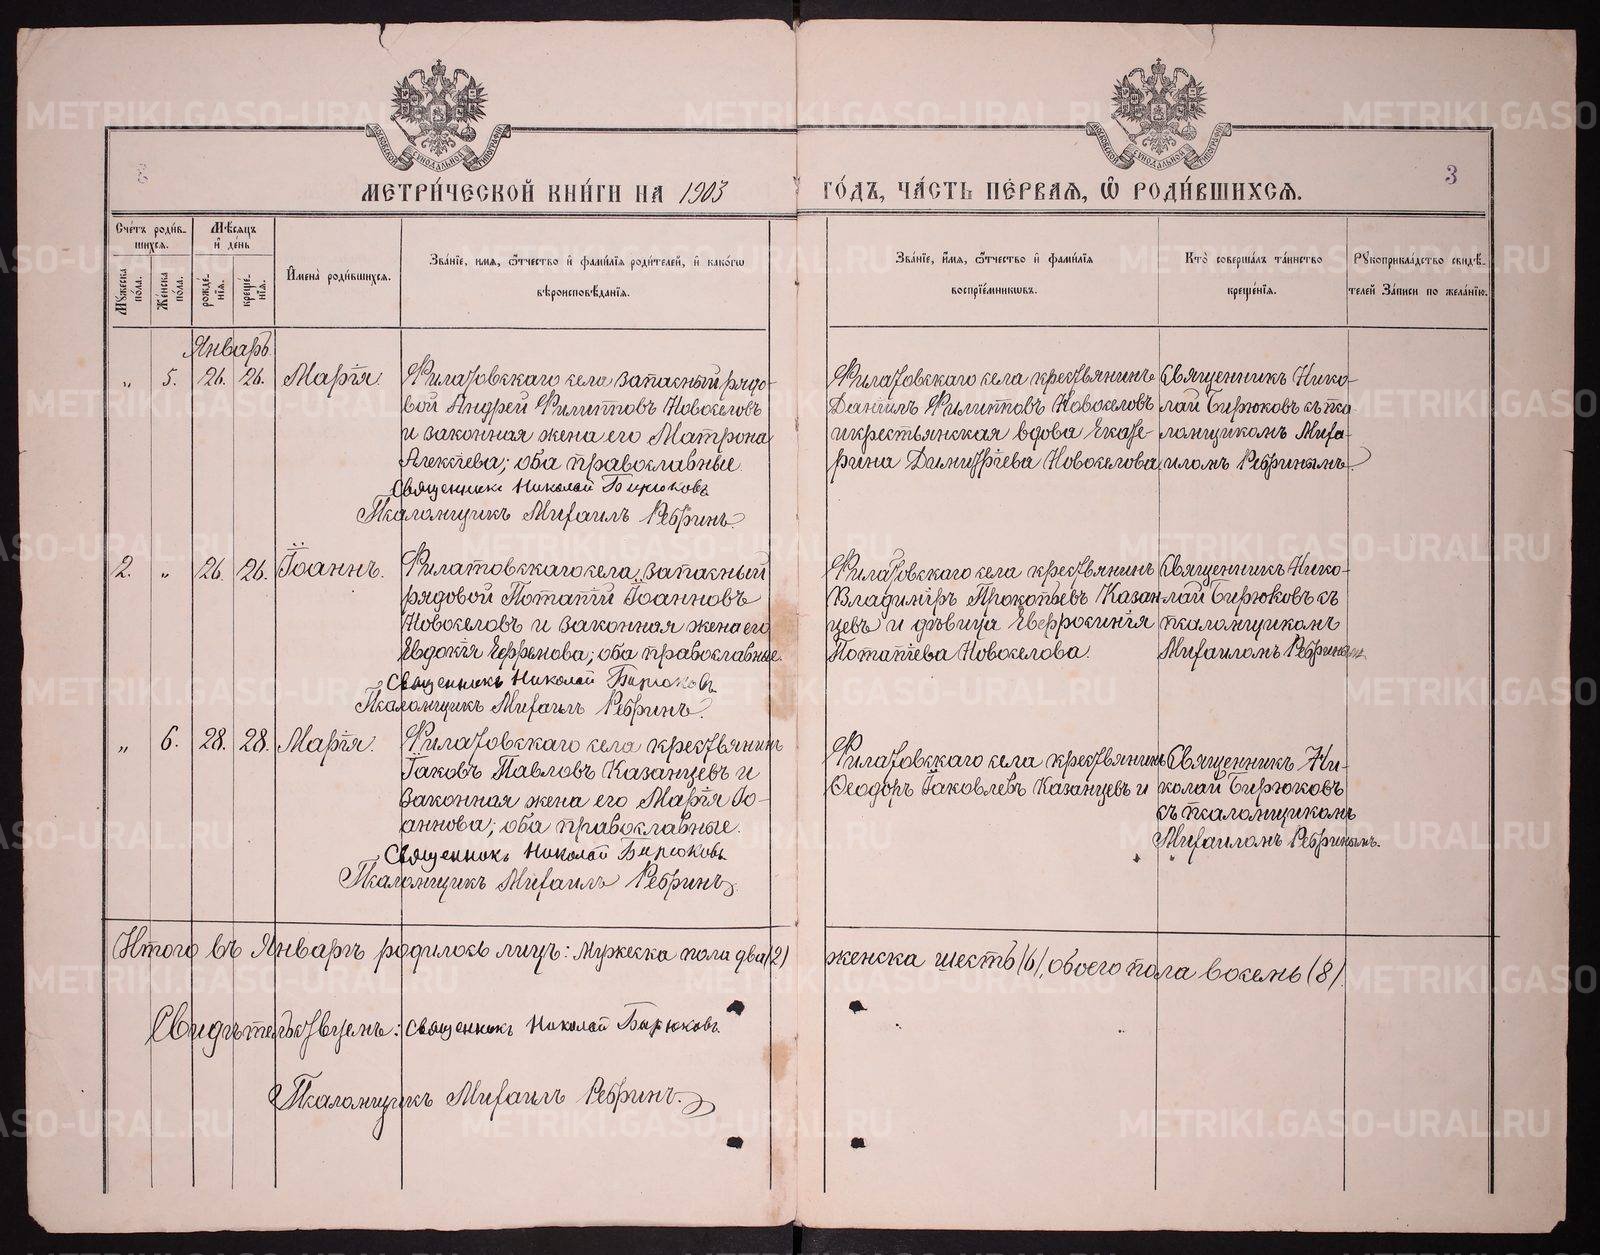 МОСКОВСКОЙ СѴНОДАЛЬНОЙ ТИПОГРАФІИ
МОСКОВСКОЙ СѴНОДАЛЬНОЙ ТИПОГРАФІИ
3
МЕТРИ́ЧЕСКОЙ КНИ́ГИ НА 1903 ГО́ДЪ, ЧА́СТЬ ПЕ́РВАѦ, Ѡ҆ РОДИ́ВШИХСѦ.
Сче́тъ роди́в-
шихся.
Мѣ́сяцъ
и҆ де́нь
Му́жеска
по́ла.
Же́нска
по́ла.
рожде́-
нїя.
креще́-
нїя.
И҆мена̀ роди́вшихся.
Зва́нїе, имя, ѻ҆́тчество и҆ фами́лїя роди́телей, и҆ како́гѡ
вѣроисповѣ́данїя.
Зва́нїе, и҆́мя, ѻ҆́тчество и҆ фами́лїя
воспрїе́мникѡвъ.
Кто̀ соверша́лъ та́инство
креще́нїя.
Рꙋкоприкла́дство свидѣ́-
телей За́писи по жела́нїю.
Январь
„ 5. 26. 26. Марія.
Филатовскаго села запасный рядо-
вой Андрей Филипповъ Новоселовъ
и законная жена его Матрона
Алексіева; оба православные.
Священникъ Николай Бирюковъ
Псаломщикъ Михаилъ Ребринъ.
Филатовскаго села крестьянинъ
Даніилъ Филипповъ Новоселовъ
и крестьянская вдова Екате-
рина Димитріева Новоселова
Священникъ Нико-
лай Бирюковъ съ пса-
ломщикомъ Миха-
иломъ Ребринымъ.
2. „ 26. 26. Іоаннъ.
Филатовскаго села запасный
рядовой Потапій Іоанновъ
Новоселовъ и законная жена его
Евдокія Ефремова; оба православные.
Священникъ Николай Бирюковъ
Псаломщикъ Михаилъ Ребринъ.
Филатовскаго села крестьянинъ
Владиміръ Прокопьевъ Казан-
цевъ и дѣвица Евфросинія
Потапіева Новоселова.
Священникъ Нико-
лай Бирюковъ съ
псаломщикомъ
Михаиломъ Ребринымъ
„ 6. 28. 28. Марія.
Филатовскаго села крестьянинъ
Іаковъ Павловъ Казанцевъ и
законная жена его Марія Іо-
аннова; оба православные.
Священникъ Николай Бирюковъ
Псаломщикъ Михаилъ Ребринъ.
Филатовскаго села крестьянинъ
Ѳеодоръ Іаковлевъ Казанцевъ и
Священникъ Ни-
колай Бирюковъ
съ псаломщикомъ
Михаиломъ Ребринымъ.
Итого въ Январѣ родилось лицъ: Мужеска пола два (2) женска шесть (6), обоего пола восемь (8).
Свидѣтельствуемъ: Священникъ Николай Бирюковъ.
Псаломщикъ Михаилъ Ребринъ.
METRIKI.GASO-URAL.RU